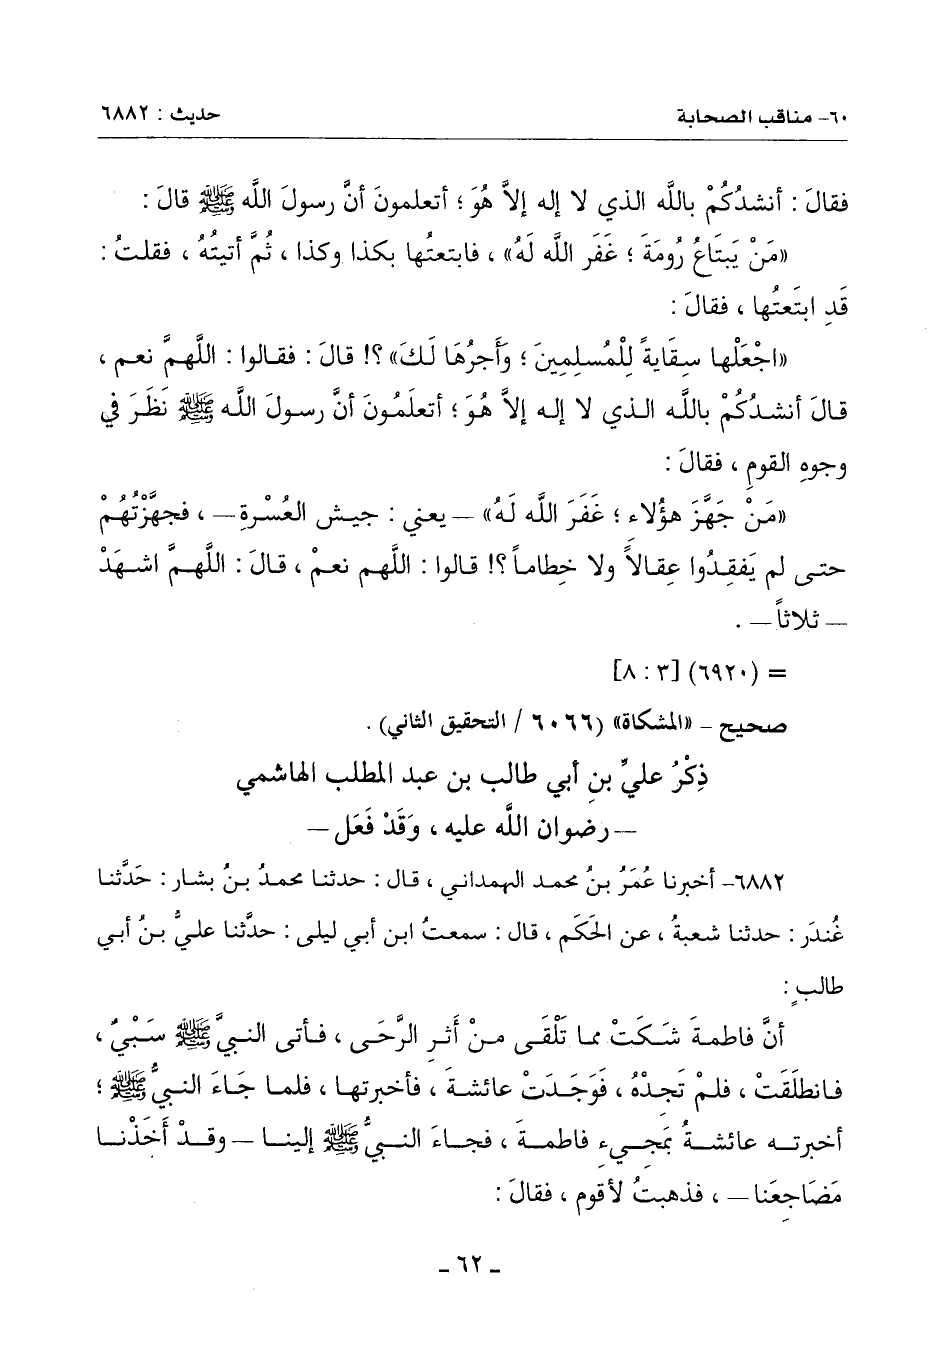 ٦٠- مناقب الصحابة حديث : ٦٨٨٢
فقالَ : أنشدُكُمْ باللَّه الذي لا إله إلاَّ هُوَ ؛ أتعلمونَ أنَّ رسولَ اللَّه ﷺ قالَ :
«مَنْ يَبتَاعُ رُومَةَ ؛ غَفَر اللَّه لَهُ» ، فابتعتُها بكذا وكذا ، ثُمَّ أتيتُهُ ، فقلتُ :
قَدِ ابتَعتُها ، فقالَ :
«اجْعَلْها سِقَايةً لِلْمُسلِمِينَ ؛ وَأَجرُهَا لَكَ» ؟! قالَ : فقالوا : اللَّهمَّ نعم ،
قالَ أنشدُكُمْ باللَّه الذي لا إله إلاَّ هُوَ ؛ أتعلَمُونَ أنَّ رسولَ اللَّه ﷺ نَظَرَ في
وجوهِ القومِ ، فقالَ :
«مَنْ جَهَّزَ هؤُلاء ؛ غَفَرَ اللَّه لَهُ» – يعني : جيش العُسْرةِ – ، فجهَّزْتُهُمْ
حتى لم يَفقِدُوا عِقالاً ولا خِطاماً ؟! قالوا : اللَّهم نعمْ ، قالَ : اللَّهمَّ اشهَدْ
– ثلاثاً – .
= (٦٩٢٠) [٣ : ٨]
صحيح – «المشكاة» (٦٠٦٦ / التحقيق الثاني) .
ذِكْرُ عليِّ بنِ أبي طالب بن عبد المطلب الهاشمي
– رضوان اللَّه عليه ، وَقَدْ فَعَل –
٦٨٨٢- أخبرنا عُمَرُ بنُ محمد الهمداني ، قال : حدثنا محمدُ بنُ بشار : حَدَّثنا
غُندَر : حدثنا شعبةُ ، عن الحَكَم ، قال : سمعتُ ابن أبي ليلى : حدَّثنا عليُّ بنُ أبي
طالبٍ :
أنَّ فاطمةَ شَكَتْ مما تَلْقَى مِنْ أَثرِ الرَّحَى ، فأتى النبيَّ ﷺ سَبْيٌ ،
فانطلَقَتْ ، فلمْ تَجدْهُ ، فَوَجَدَتْ عائشةَ ، فأخبرتها ، فلما جَاءَ النبيُّ ﷺ ؛
أخبرته عائشةُ بمَجيءِ فاطمةَ ، فجاءَ النبيُّ ﷺ إلينا – وقدْ أَخَذْنا
مَضَاجِعَنا – ، فذهبتُ لأقوم ، فقالَ :
- ٦٢ -